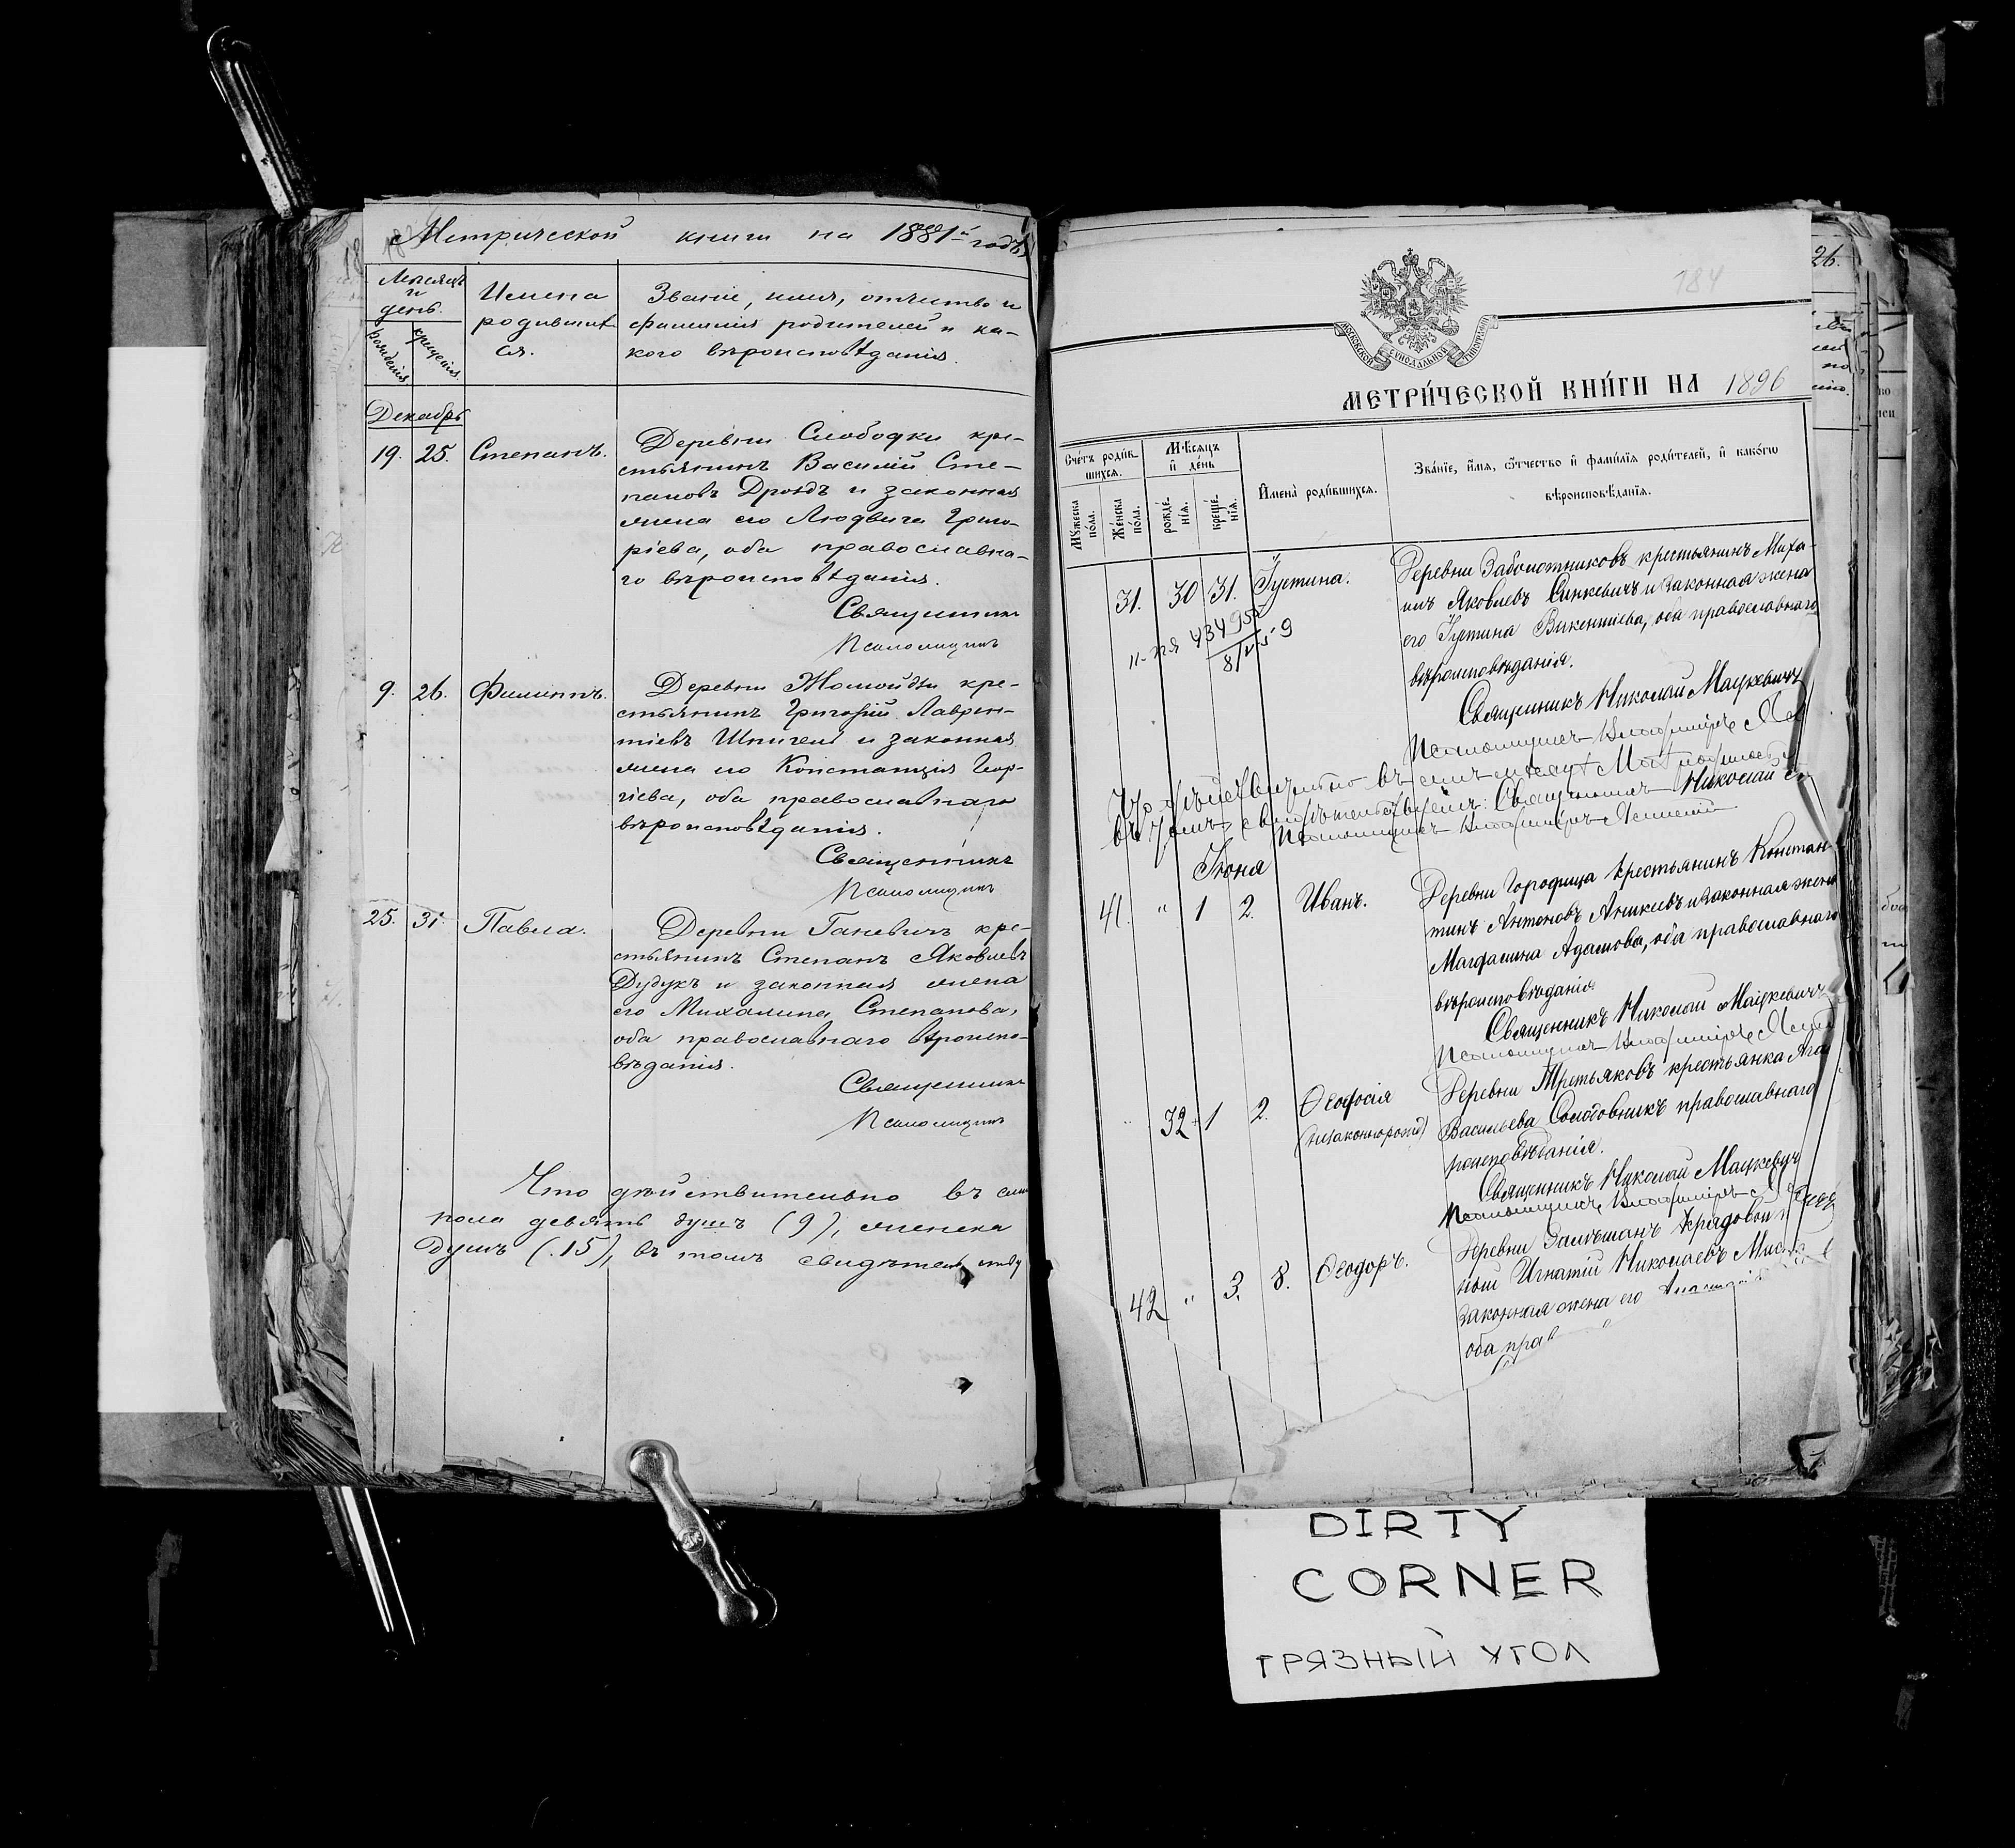 Метрической книги на 1881й годъ
Мѣсяцъ и день.
рожденія
крещенія.
Имена родившихся.
Званіе, имя, отчество и
фамилія родителей и ка-
кого вѣроисповѣданія.
Декабрь
19. 25. Степанъ. Деревни Слободки кре-
стьянинъ Василій Сте-
пановъ Дроздъ и законная
жена его Людвига Григо-
ріева, оба православна-
го вѣроисповѣданія.
Священникъ
Псаломщикъ
9. 26. Филиппъ. Деревни Жомойдзи кре-
стьянинъ Григорій Лаврен-
тіевъ Шпигель и законная
жена его Констанція Геор-
гіева, оба православнаго
вѣроисповѣданія.
Священникъ
Псаломщикъ
25. 31. Павла. Деревни Ганевичъ кре-
стьянинъ Степанъ Яковлевъ
Дудукъ и законная жена
его Михалина Степанова,
оба православнаго вѣроиспо-
вѣданія.
Священникъ
Псаломщикъ
Что дѣйствительно въ сем
пола девять душъ (9), женска
душъ (15), въ томъ свидѣтельству
184
МОСКОВСКОЙ СѴНОДАЛЬНОЙ ТИПОГРАФІИ
МЕТРИ́ЧЕСКОЙ КНИ́ГИ НА 1896
Сче́тъ роди́в-
шихся.
Мѹ́жеска по́ла.
Же́нска по́ла.
Мѣ́сяцъ и҆ де́нь
рожде́-
нія.
креще́-
нія.
И҆мена̀ роди́вшихся.
Зва́нїе, и҆́мя, ѻ҆́тчество и҆ фами́лїя роди́телей, и҆ како́гѡ
вѣроисповѣ́данїя.
31. 30 31. Іустина. Деревни Заболотниковъ крестьянинъ Миха-
илъ Яковлевъ Синкевичъ и законная жена
его Іустина Викентіева, оба православнаго
вѣроисповѣданія.
Священникъ Николай Мацкевичъ
Псаломщикъ Владиміръ
Что дѣйствительно въ семъ мѣсяцѣ Маѣ
въ томъ свидѣтельствуемъ: Священникъ Николай
Псаломщикъ Владиміръ
Іюня
41. " 1 2. Иванъ. Деревни Городища крестьянинъ Констан-
тинъ Антоновъ Аникеевъ и законная жена
Магдалина Адамова, оба православнаго
вѣроисповѣданія
Священникъ Николай Мацкевичъ
Псаломщикъ Владиміръ
" 32 1 2. Ѳеодосія (незаконнорожд) Деревни Третьяковъ крестьянка Ага
Васильева Солодовникъ православнаго
роисповѣданія.
Священникъ Николай Мацкевичъ
Псаломщикъ Владиміръ
42 " 3. 8. Ѳеодоръ. Деревни рядовой
ный Игнатій Николаевъ
законная жена его
оба прав
26.
DIRTY
CORNER
ГРЯЗНЫЙ УГОЛ